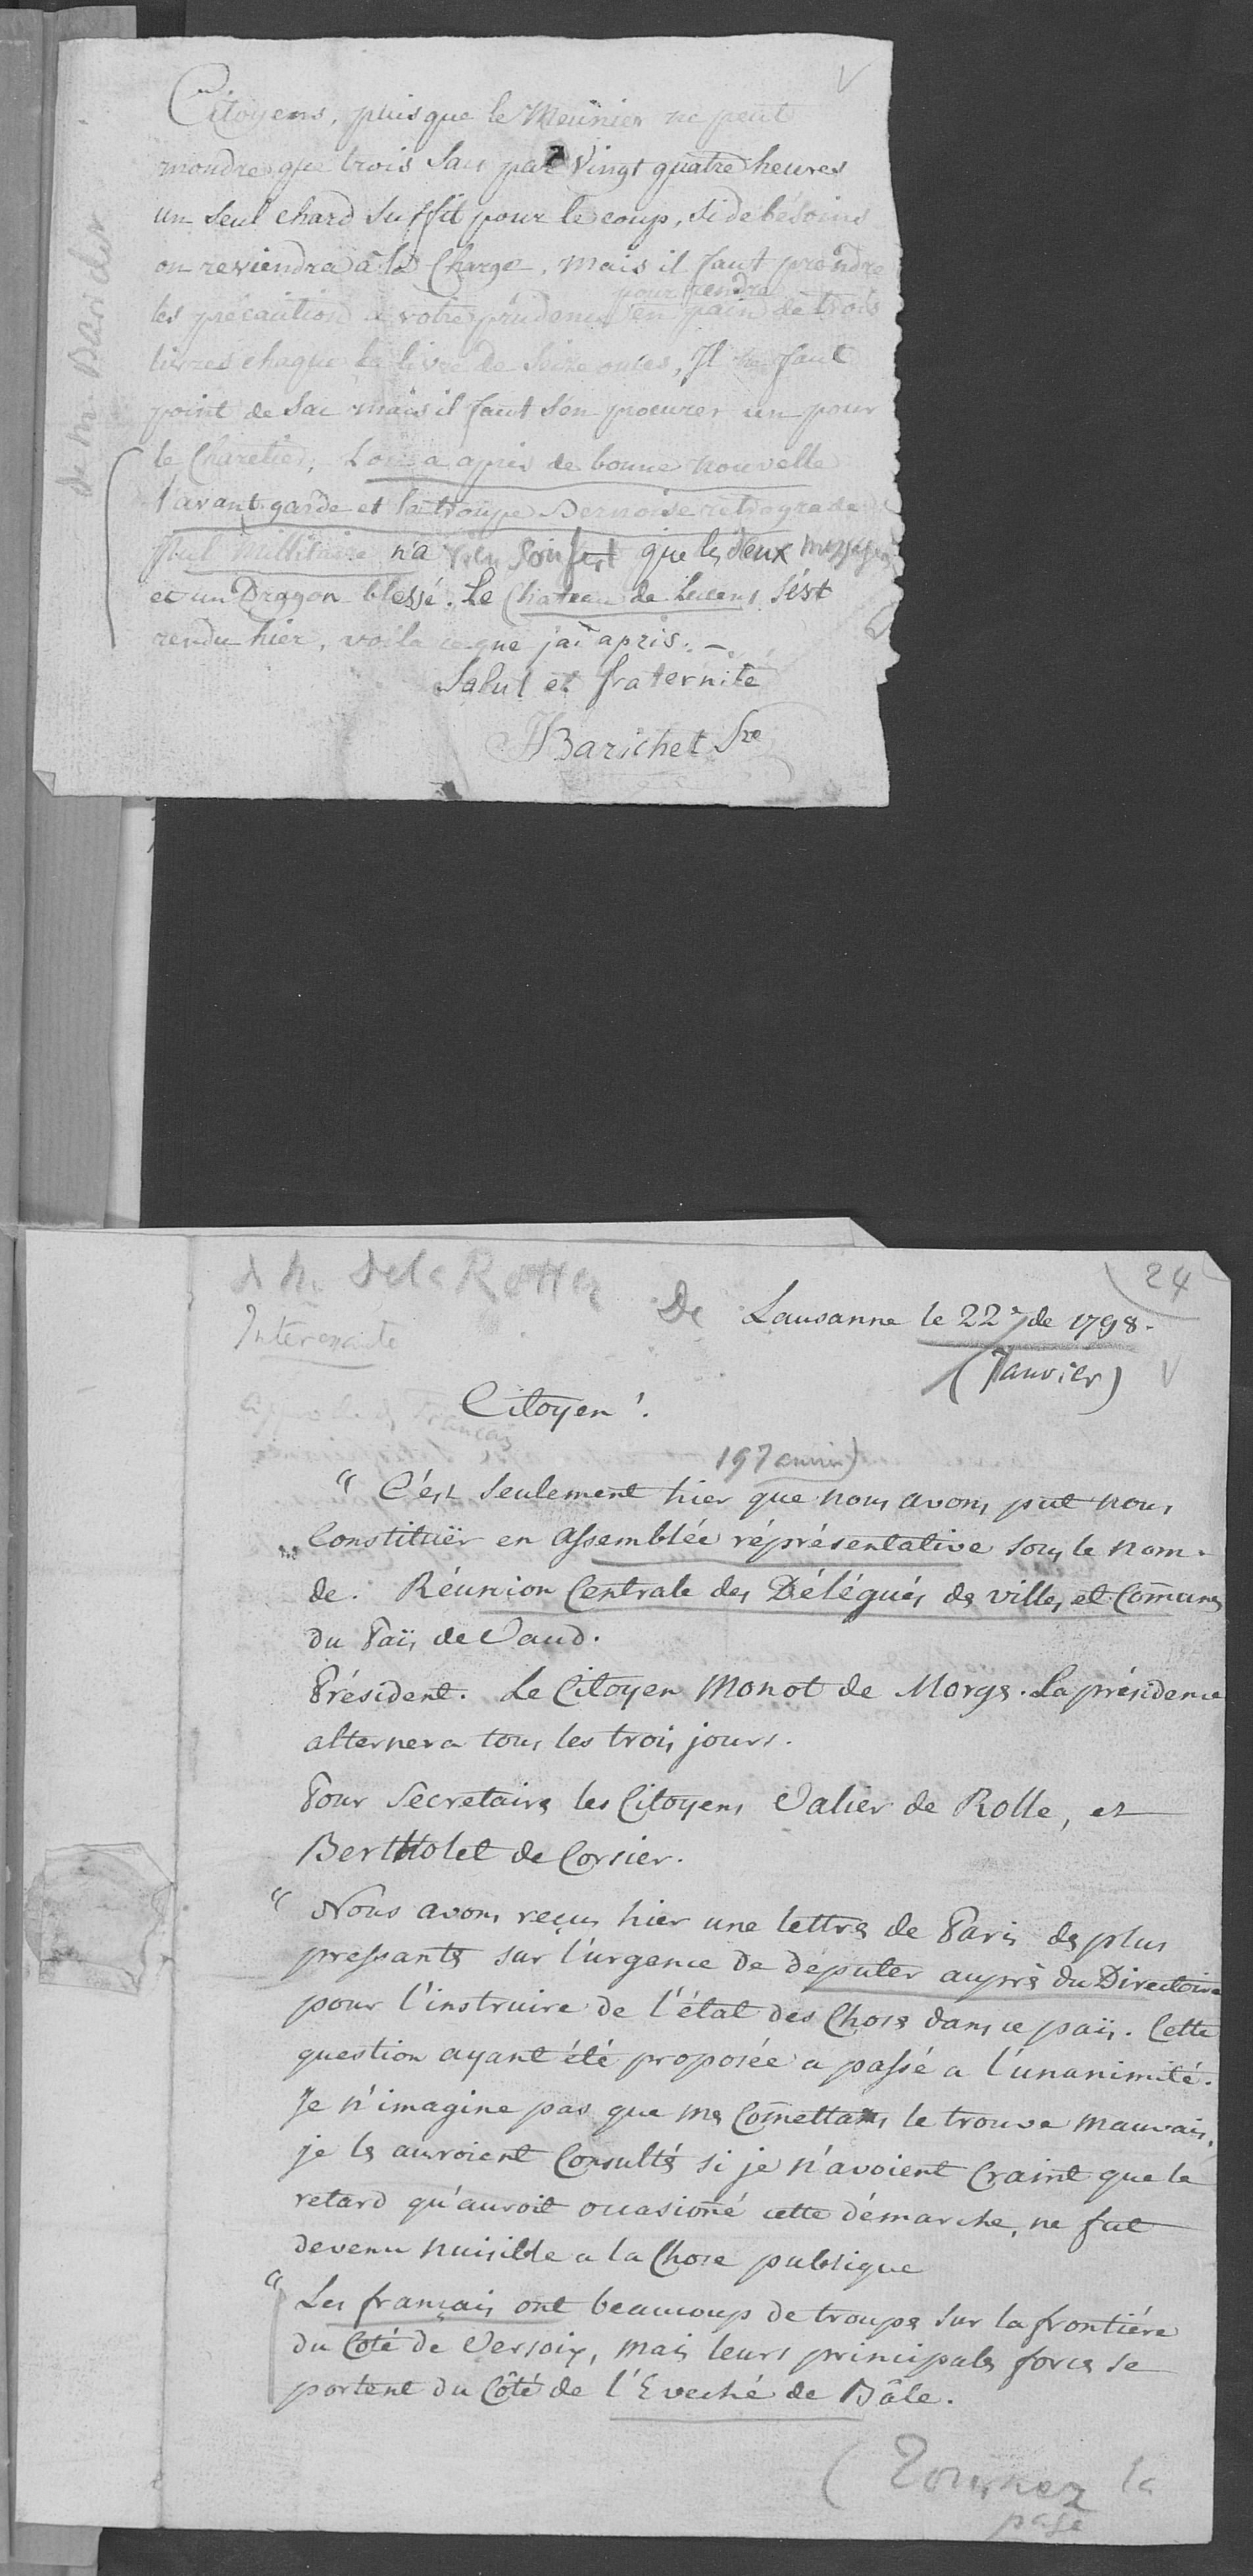 Citoyens, puisque le Meunier ne peut
moudre que trois Sac par Vingt quatre heures
un Seul chard Suffit pour le coup, si de bésoins
on reviendra à la Charge, Mais il faut prendre
pour rendre
les précaution a votre prudence en pain de trois
livres chaque la livre de Seize onces, Il ne faut
point de Sac mais il faut s'en procurer un pour
le Charetier, L'on a apris de bonne nouvelle
l'avant-garde et la troupe Bernoise retrograde
nul Millitaire n'a rien Soufert que les deux
et un Dragon blessé. Le Chateau de Lucens s'est
rendu hier, voila ce que j'ai apris. –
Salut et fraternité
Barichet Sre
V
24
De Lausanne le 22e de 1798.
(Janvier) V
Citoyen!
19 Janvier)
" C'est Seulement hier que nous avons put nous
Constituër en Assemblée réprésentative sous le nom.
de. Réunion Centrale des Délégués de villes et Comunes
du Païs de Vaud.
Président. Le Citoyen Monot de Morges. La présidence
alternera tous les trois jours.
Pour Secretaires les Citoyens Valier de Rolle, et
Bertholet de Corsier.
" Nous avons reçus hier une lettre de Paris des plus
pressantes sur l'urgence de députer auprès du Directoire
pour l'instruire de l'état des Choses dans ce païs. Cette
question ayant été proposée a passé a l'unanimité.
Je n'imagine pas que mes Comettans le trouve mauvais,
je les auroient Consultés si je n'avoient Craint que le
retard qu'auroit ocasioné cette démarche, ne fut
devenu nuisible a la Chose publique
" Les français ont beaucoup de troupes sur la frontiére
du Coté de Versoix, mais leurs principales forces se
portent du Côté de l'Evéché de Bâle.
(Tournez la
page